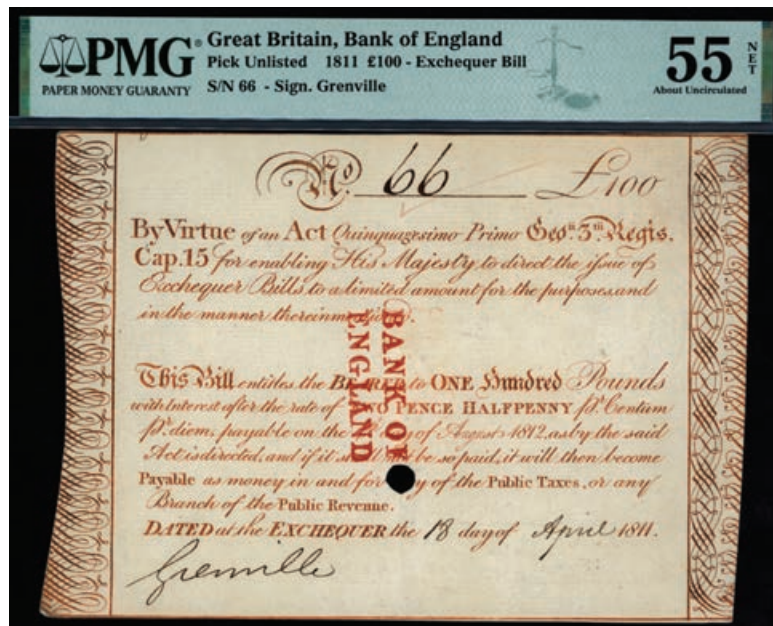 PMG
PAPER MONEY GUARANTY
Great Britain, Bank of England
Pick Unlisted 1811 £100 - Exchequer Bill
S/N 66 - Sign. Grenville
55 NET
About Uncirculated
No. 66 £100
By Virtue of an Act Quinquagesimo Primo Geo.ii 3.tii Regis.
Cap.15 for enabling His Majesty to direct the issue of
Exchequer Bills to a limited amount for the purposes and
in the manner therein
This Bill entitles the to ONE Hundred Pounds
with Interest after the rate of TWO PENCE HALFPENNY pr. Centum
pr. diem, payable on the of August 1812, as by the said
Act is directed, and if it be so paid, it will then become
Payable as money in and for of the Public Taxes, or any
Branch of the Public Revenue.
DATED at the EXCHEQUER the 18 day of April 1811.
Grenville
BANK OF
ENGLAND